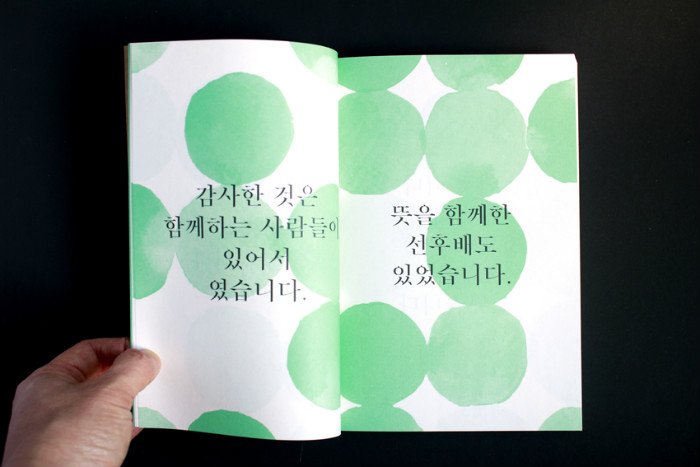 감사한 것은
함께하는 사람들이
있어서
였습니다.
뜻을 함께한
선후배도
있었습니다.